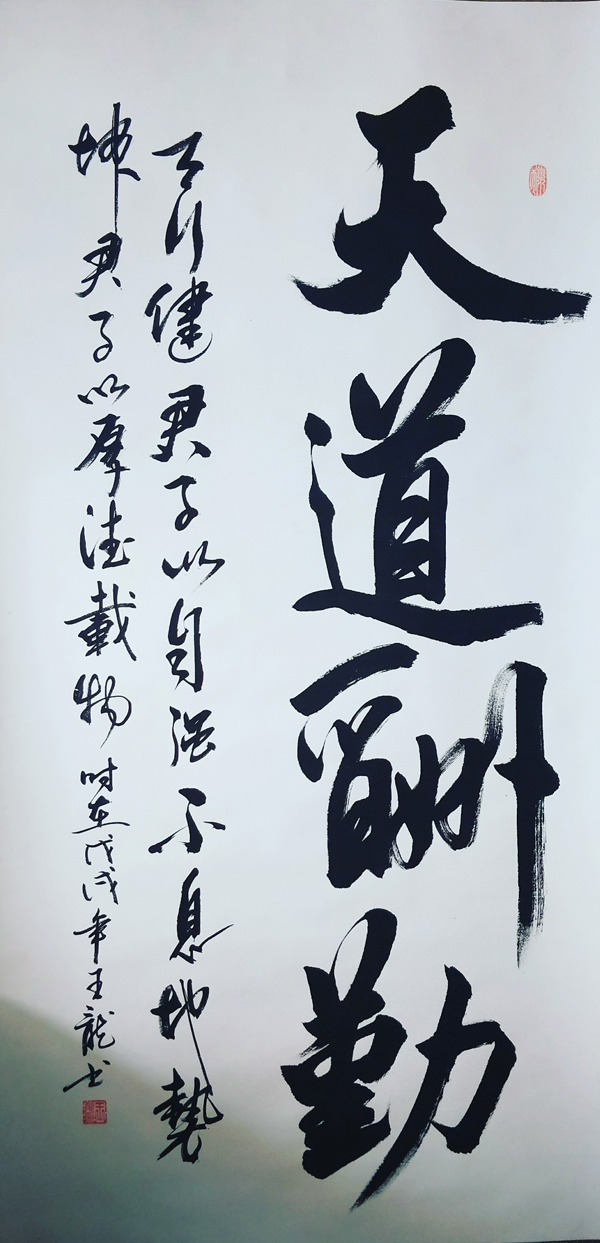 天道酬勤
天行健君子以自强不息地势
坤君子以厚德載物 时在戊戌年王龍书